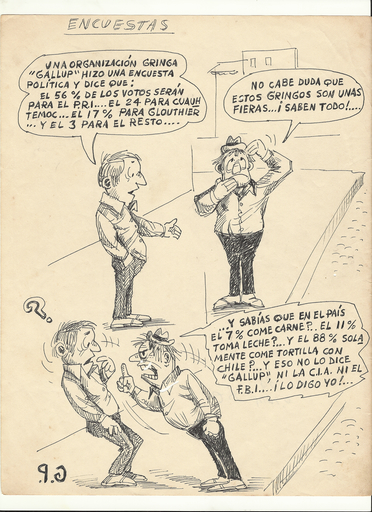 ENCUESTAS
UNA ORGANIZACIÓN GRINGA
"GALLUP" HIZO UNA ENCUESTA
POLÍTICA Y DICE QUE:
EL 56 % DE LOS VOTOS SERÁN
PARA EL P.R.I.... EL 24 PARA CUAUH
TEMOC... EL 17 % PARA GLOUTHIER
... Y EL 3 PARA EL RESTO....
NO CABE DUDA QUE
ESTOS GRINGOS SON UNAS
FIERAS...¡SABEN TODO!....
...Y SABÍAS QUE EN EL PAÍS
EL 7% COME CARNE?.. EL 11%
TOMA LECHE?... Y EL 88 % SOLA
MENTE COME TORTILLA CON
CHILE?... Y ESO NO LO DICE
"GALLUP", NI LA C.I.A. NI EL
F.B.I....¡LO DIGO YO!...
?
G.P.